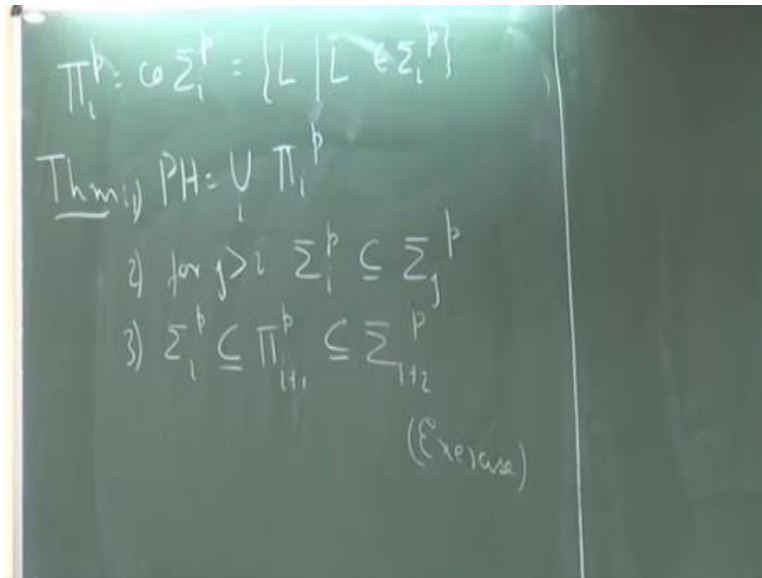 Π_i^p = co Σ_i^p = {L | L̄ ∈ Σ_i^p}
Thm 1) PH = ∪_i Π_i^p
2) for j > i Σ_i^p ⊆ Σ_j^p
3) Σ_i^p ⊆ Π_{i+1}^p ⊆ Σ_{i+2}^p
(Exercise)